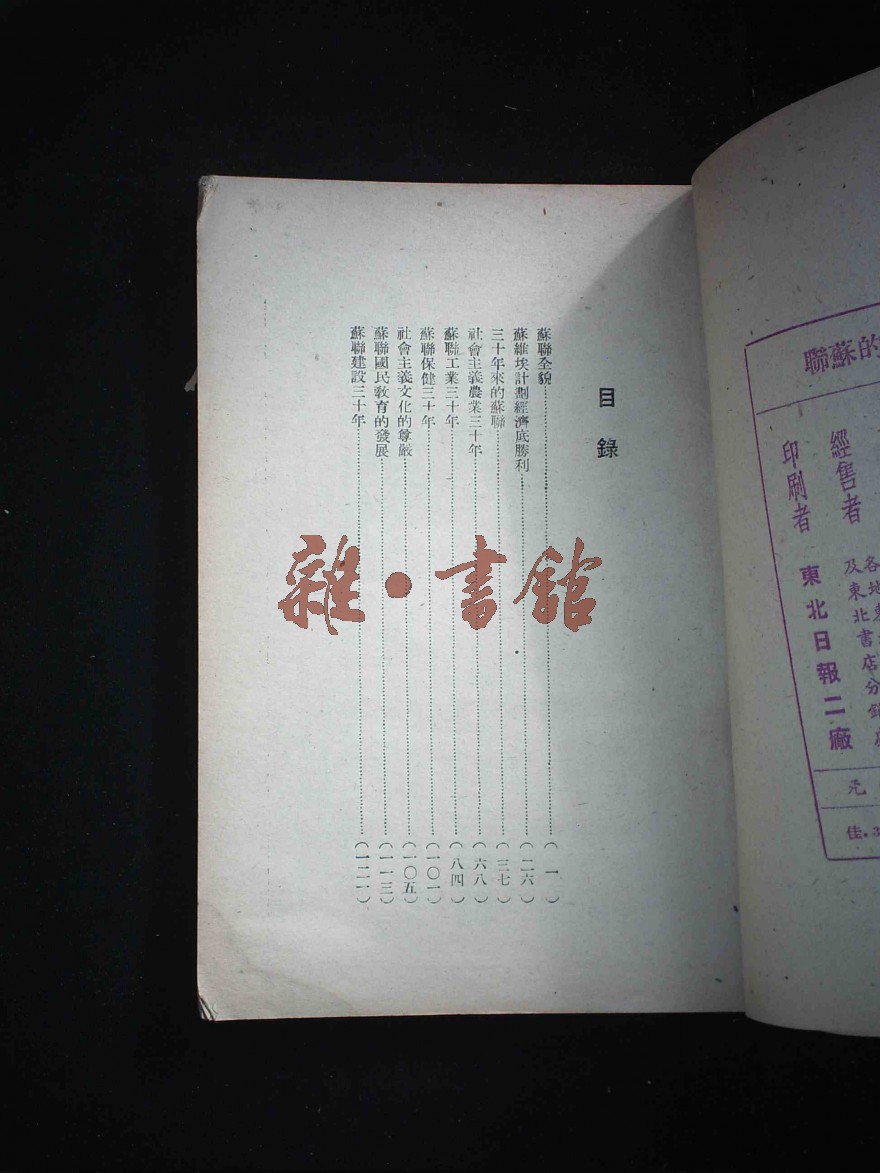 的蘇聯
經售者
各地東
及東北書店分銷處
印刷者 東北日報二廠
佳.3
目錄
蘇聯全貌……(一)
蘇維埃計劃經濟底勝利……(二六)
三十年來的蘇聯……(三七)
社會主義農業三十年……(六八)
蘇聯工業三十年……(八四)
蘇聯保健三十年……(一〇一)
社會主義文化的尊嚴……(一〇五)
蘇聯國民教育的發展……(一一三)
蘇聯建設三十年……(一二一)
雜·書館